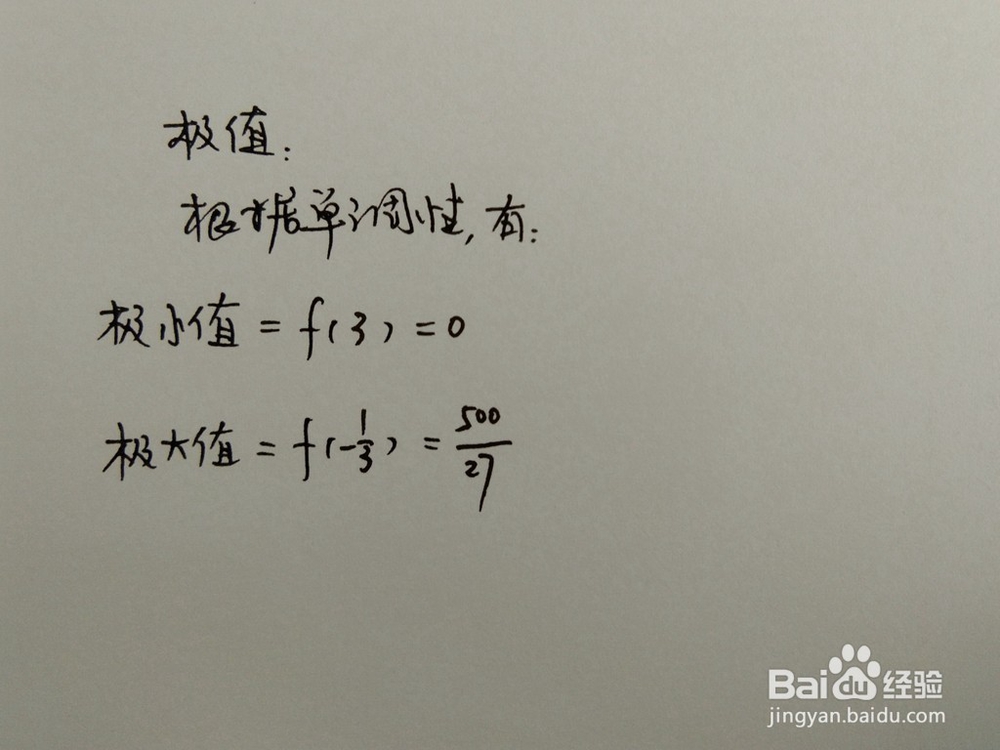 极值:
根据单调性,有:
极小值 = f(3) = 0
极大值 = f(-1/3) = 500/27
Baidu经验
jingyan.baidu.com